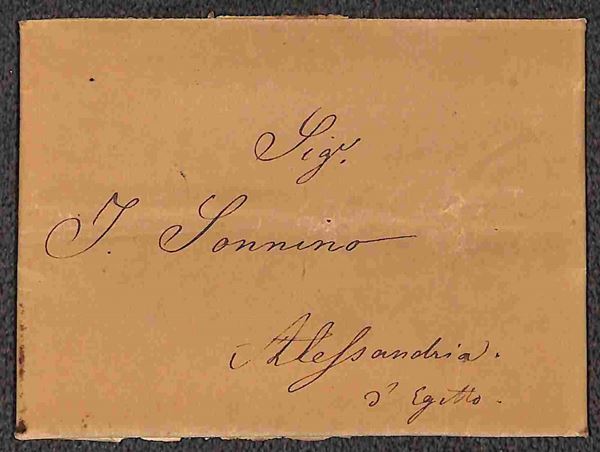 Sigr.
I. Sonnino
Alessandria.
d'Egitto.